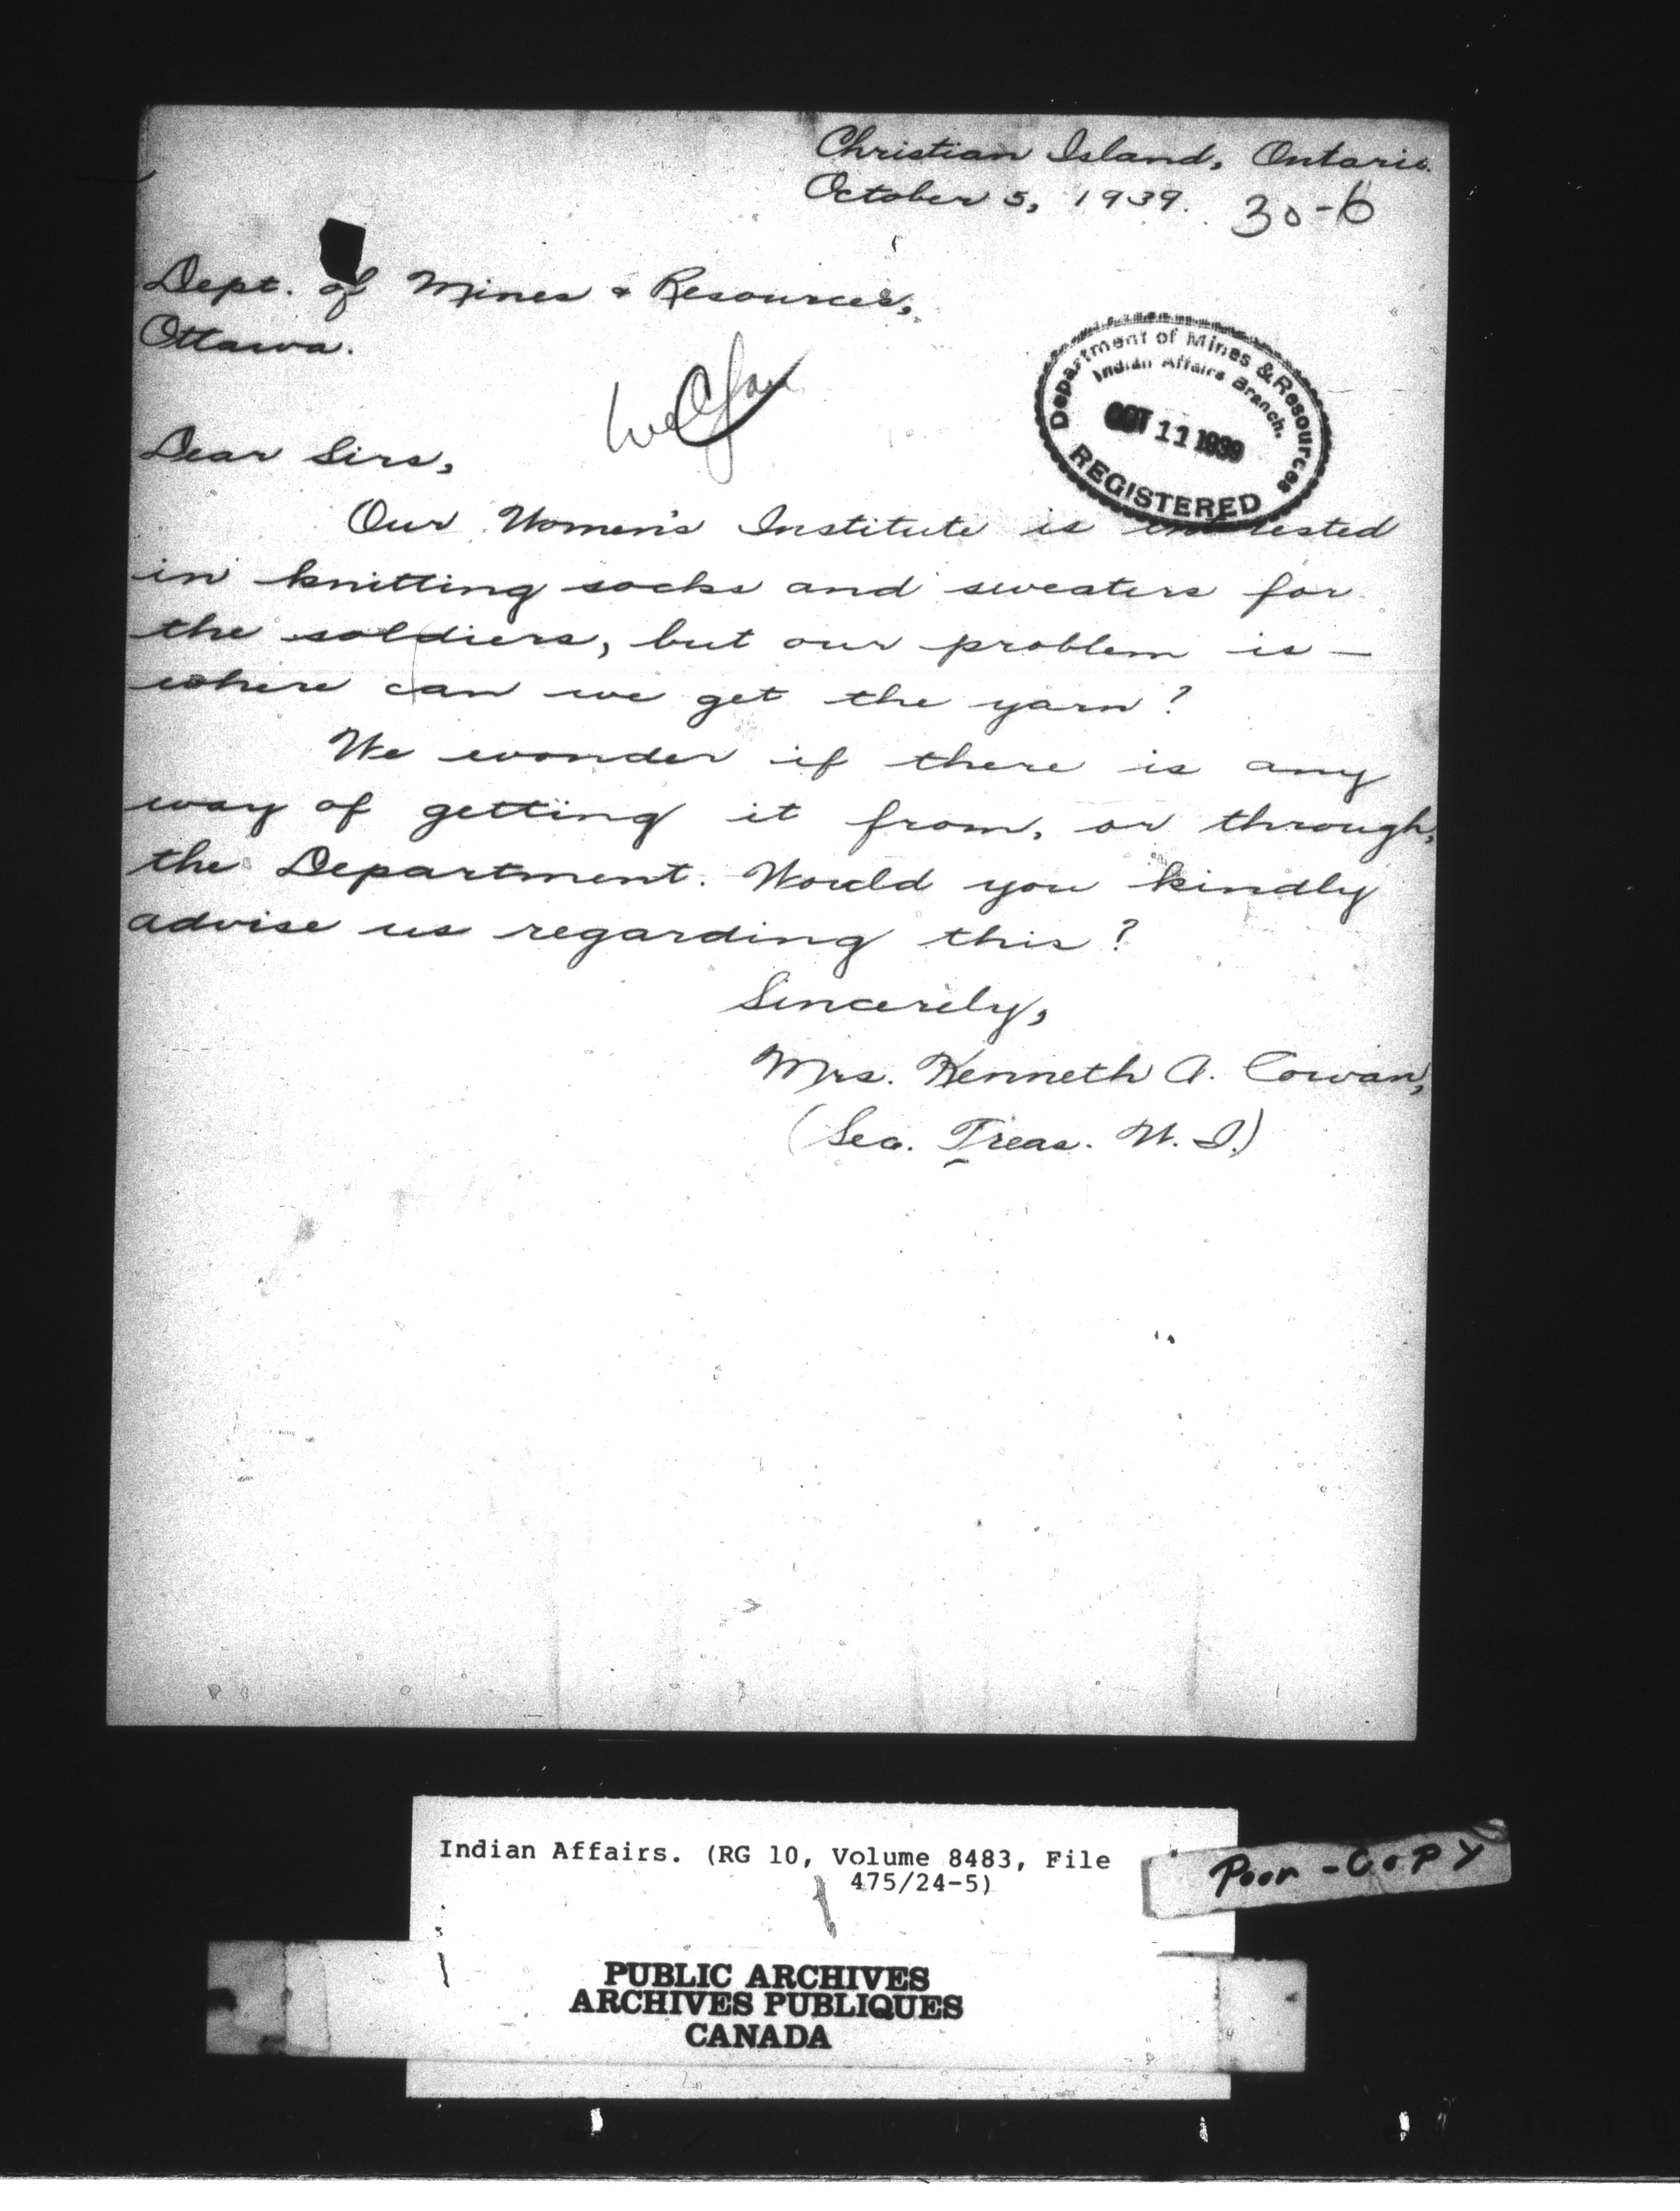 Christian Island, Ontario.
October 5, 1939.
30-6
Dept. of Mines & Resources,
Ottawa.
Department of Mines & Resources
Indian Affairs Branch.
OCT 11 1939
REGISTERED
Dear Sirs,
Our Women's Institute is interested
in knitting socks and sweaters for
the soldiers, but our problem is —
where can we get the yarn?
We wonder if there is any
way of getting it from, or through,
the Department. Would you kindly
advise us regarding this?
Sincerely,
Mrs. Kenneth A. Cowan,
(Sec. Treas. W. I.)
Indian Affairs. (RG 10, Volume 8483, File
475/24-5)
Poor-Copy
PUBLIC ARCHIVES
ARCHIVES PUBLIQUES
CANADA